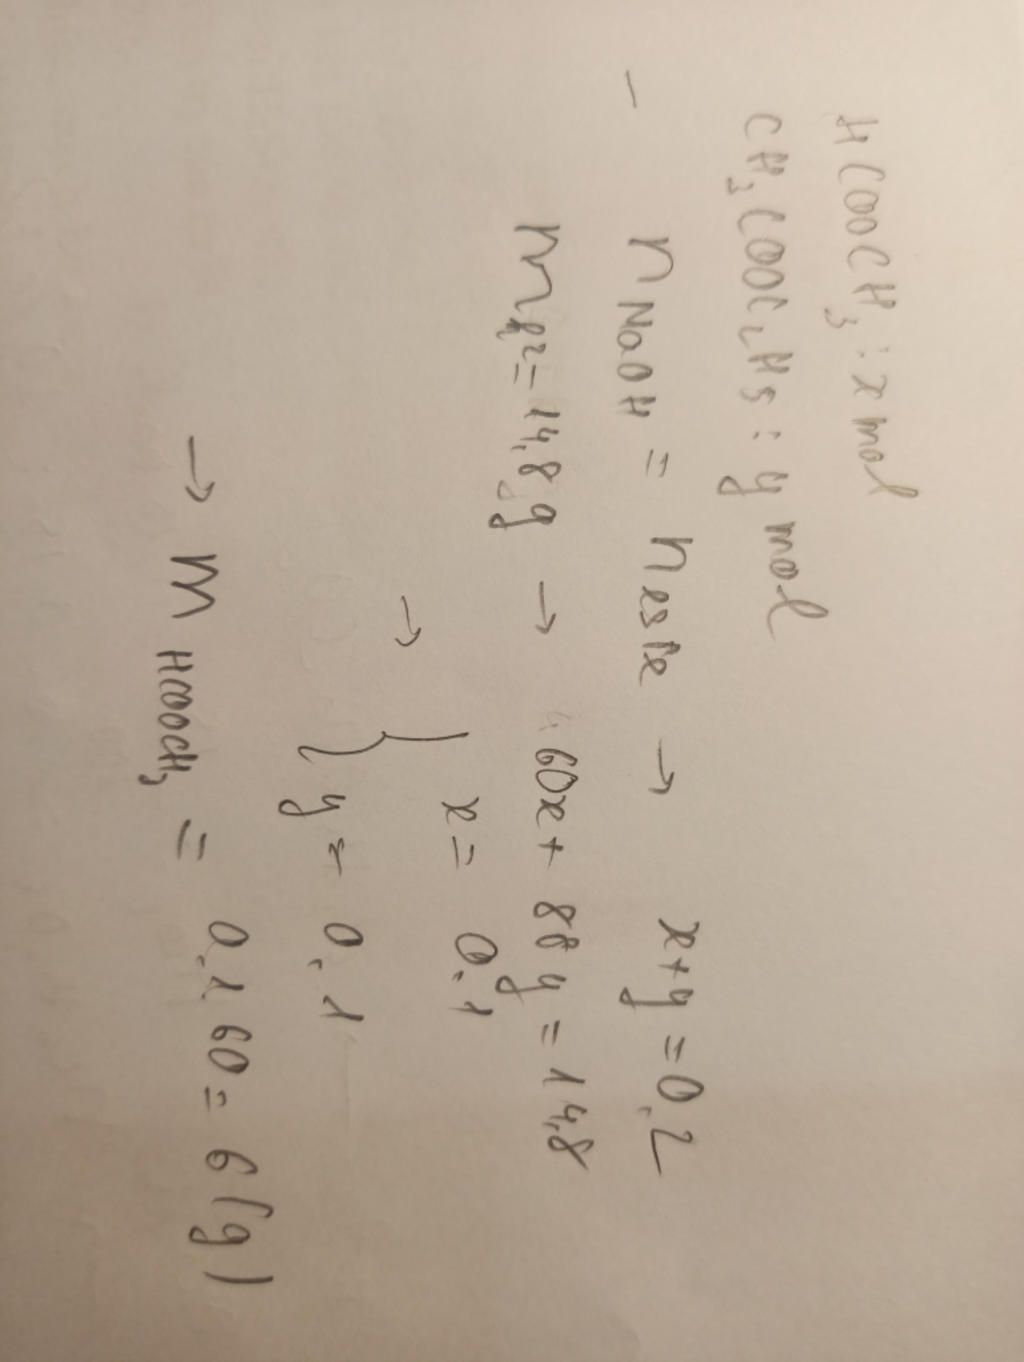 HCOOCH3 : x mol
CH3COOC2H5 : y mol
- nNaOH = neste → x+y = 0,2
m = 14,8 g → 60x + 88y = 14,8
→ { x = 0,1
y = 0,1
→ mHCOOCH3 = 0,1 60 = 6 (g)